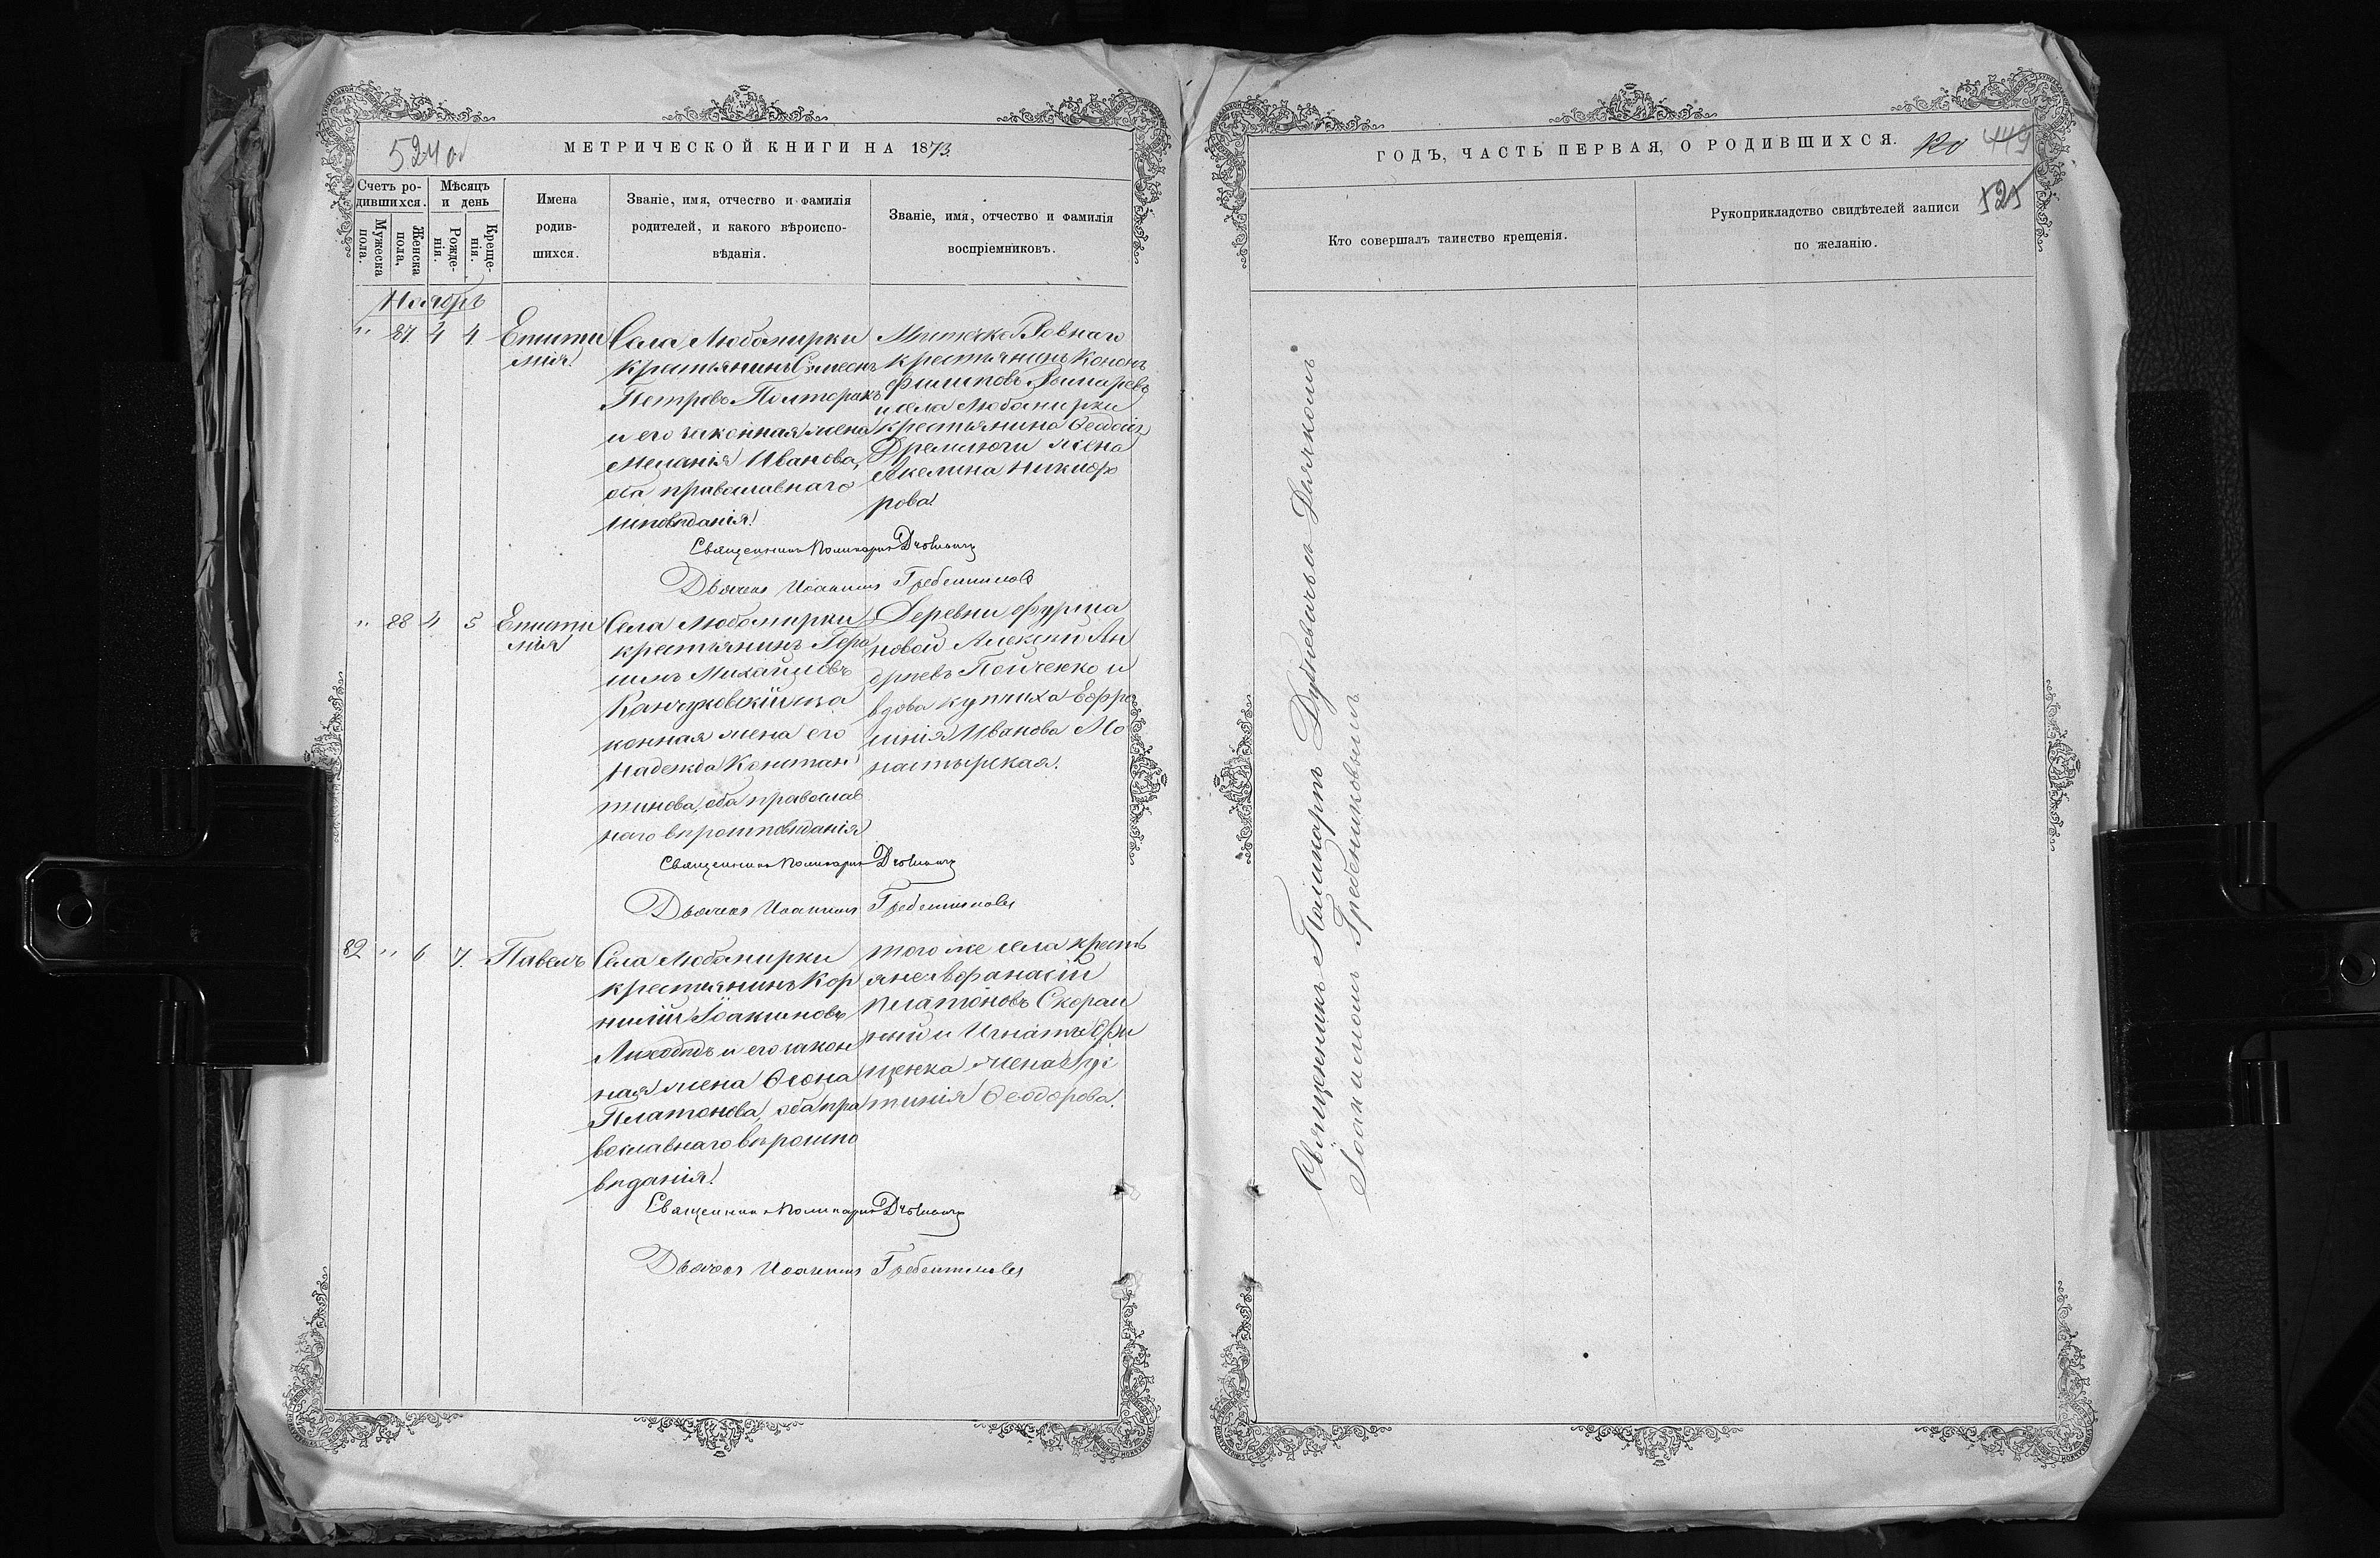 524 об
МЕТРИЧЕСКОЙ КНИГИ НА 1873
Счетъ ро-
дившихся.
Мужеска
пола.
Женска
пола.
Мѣсяцъ
и день
Рожде-
нія.
Креще-
нія.
Имена
родив-
шихся.
Званіе, имя, отчество и фамилія
родителей, и какого вѣроиспо-
вѣданія.
Званіе, имя, отчество и фамилія
воспріемниковъ.
Ноябрь
" 87 4 4
Еписти
мія
Села Любомирки
крестьянинъ Симеонъ
Петровъ Полторакъ
и его законная жена
Меланія Иванова,
оба православнаго
Мѣстечка Ровнаго
крестьянинъ Кононъ
Филиповъ
и села Любомирки
крестьянина
жена
Акелина Никифо
рова
Священникъ Поликарпъ
Дьячекъ Иоанникъ Гребенниковъ
" 88 4 5
Еписти
мія
Села Любомирки
крестьянинъ Гера
симъ Михайловъ
за
конная жена его
Надежда Констан
тинова, оба православ
наго вѣроисповѣданія
Деревни
новой Алексѣй Ан
дреевъ и
вдова купчиха Ефро
синія Иванова Мо
настырская.
Священникъ Поликарпъ
Дьячекъ Иоанникъ Гребенниковъ
82 " 6 7.
Павелъ
Села Любомирки
крестьянинъ Кор
нилій Іоакимовъ
Лиходѣдъ и его закон
ная жена
Платонова, оба пра
вославнаго вѣроиспо
вѣданія
того же села кресть
яне Афанасій
Платоновъ
и Игнатія
жена
Феодорова.
Священникъ Поликарпъ
Дьячекъ Иоанникъ Гребенниковъ
ГОДЪ, ЧАСТЬ ПЕРВАЯ, О РОДИВШИХСЯ.
449
525
Кто совершалъ таинство крещенія.
Рукоприкладство свидѣтелей записи
по желанію.
Священникъ Поликарпъ съ Дьячкомъ
Гребенниковымъ